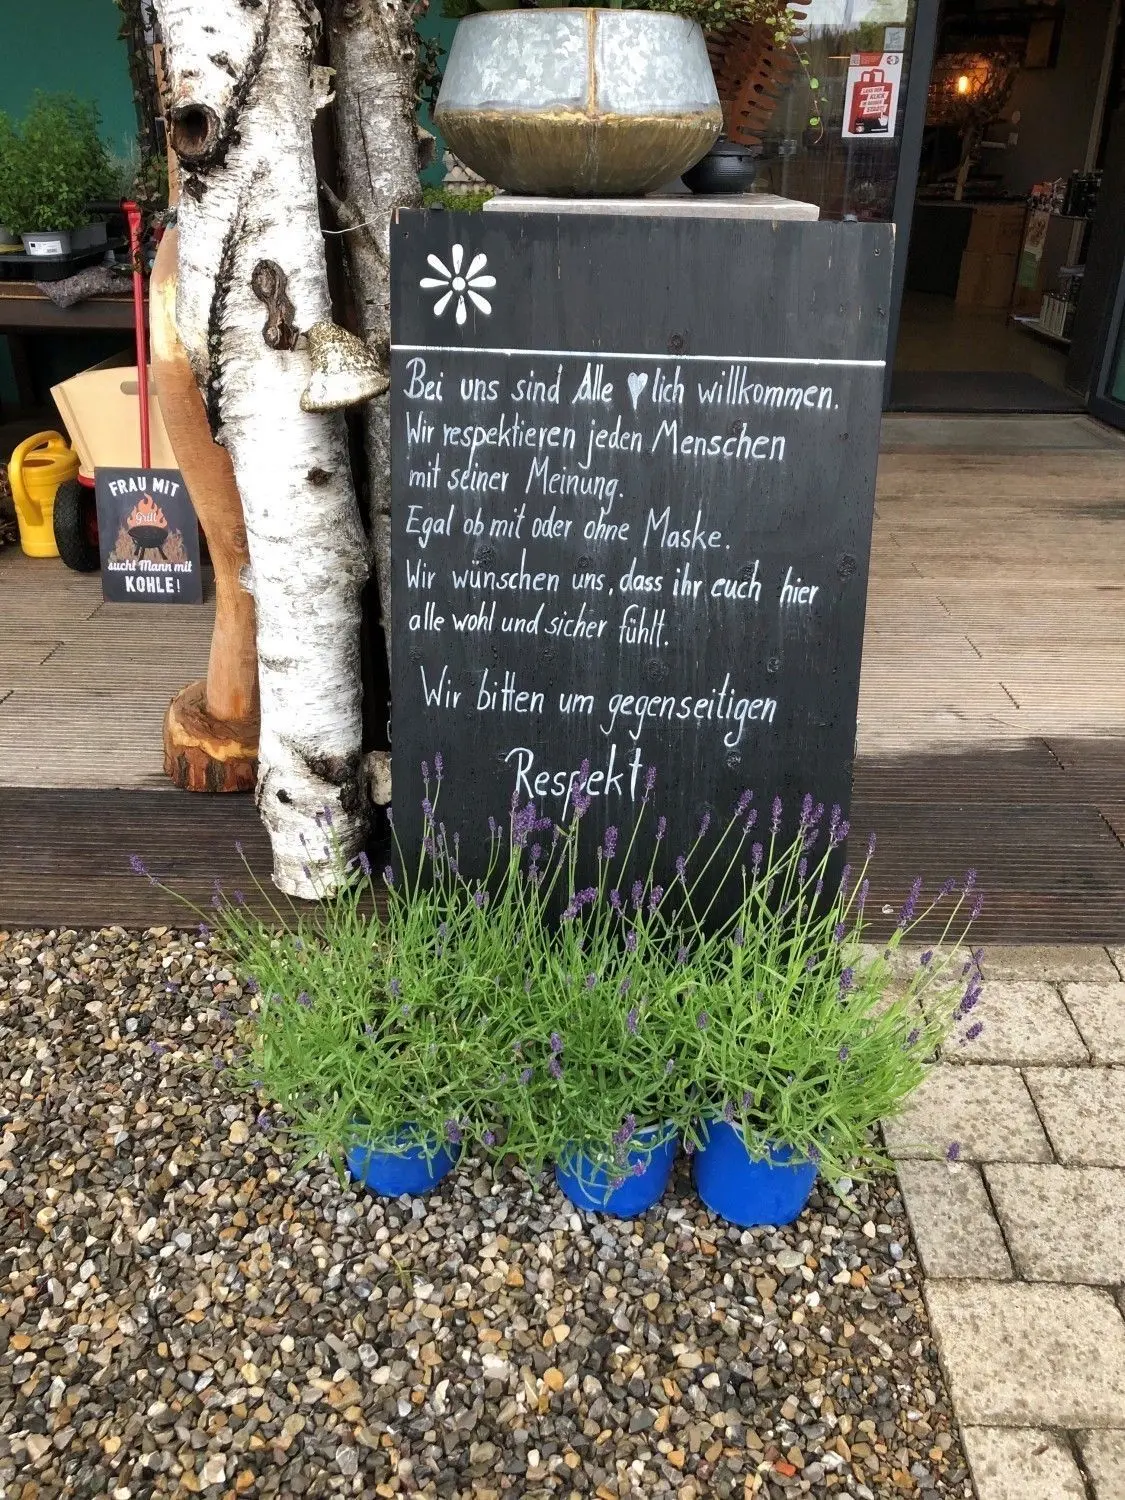 Bei uns sind Alle ♥lich willkommen.
Wir respektieren jeden Menschen
mit seiner Meinung.
Egal ob mit oder ohne Maske.
Wir wünschen uns, dass ihr euch hier
alle wohl und sicher fühlt.
Wir bitten um gegenseitigen
Respekt
FRAU MIT
Grill
sucht Mann mit
KOHLE!